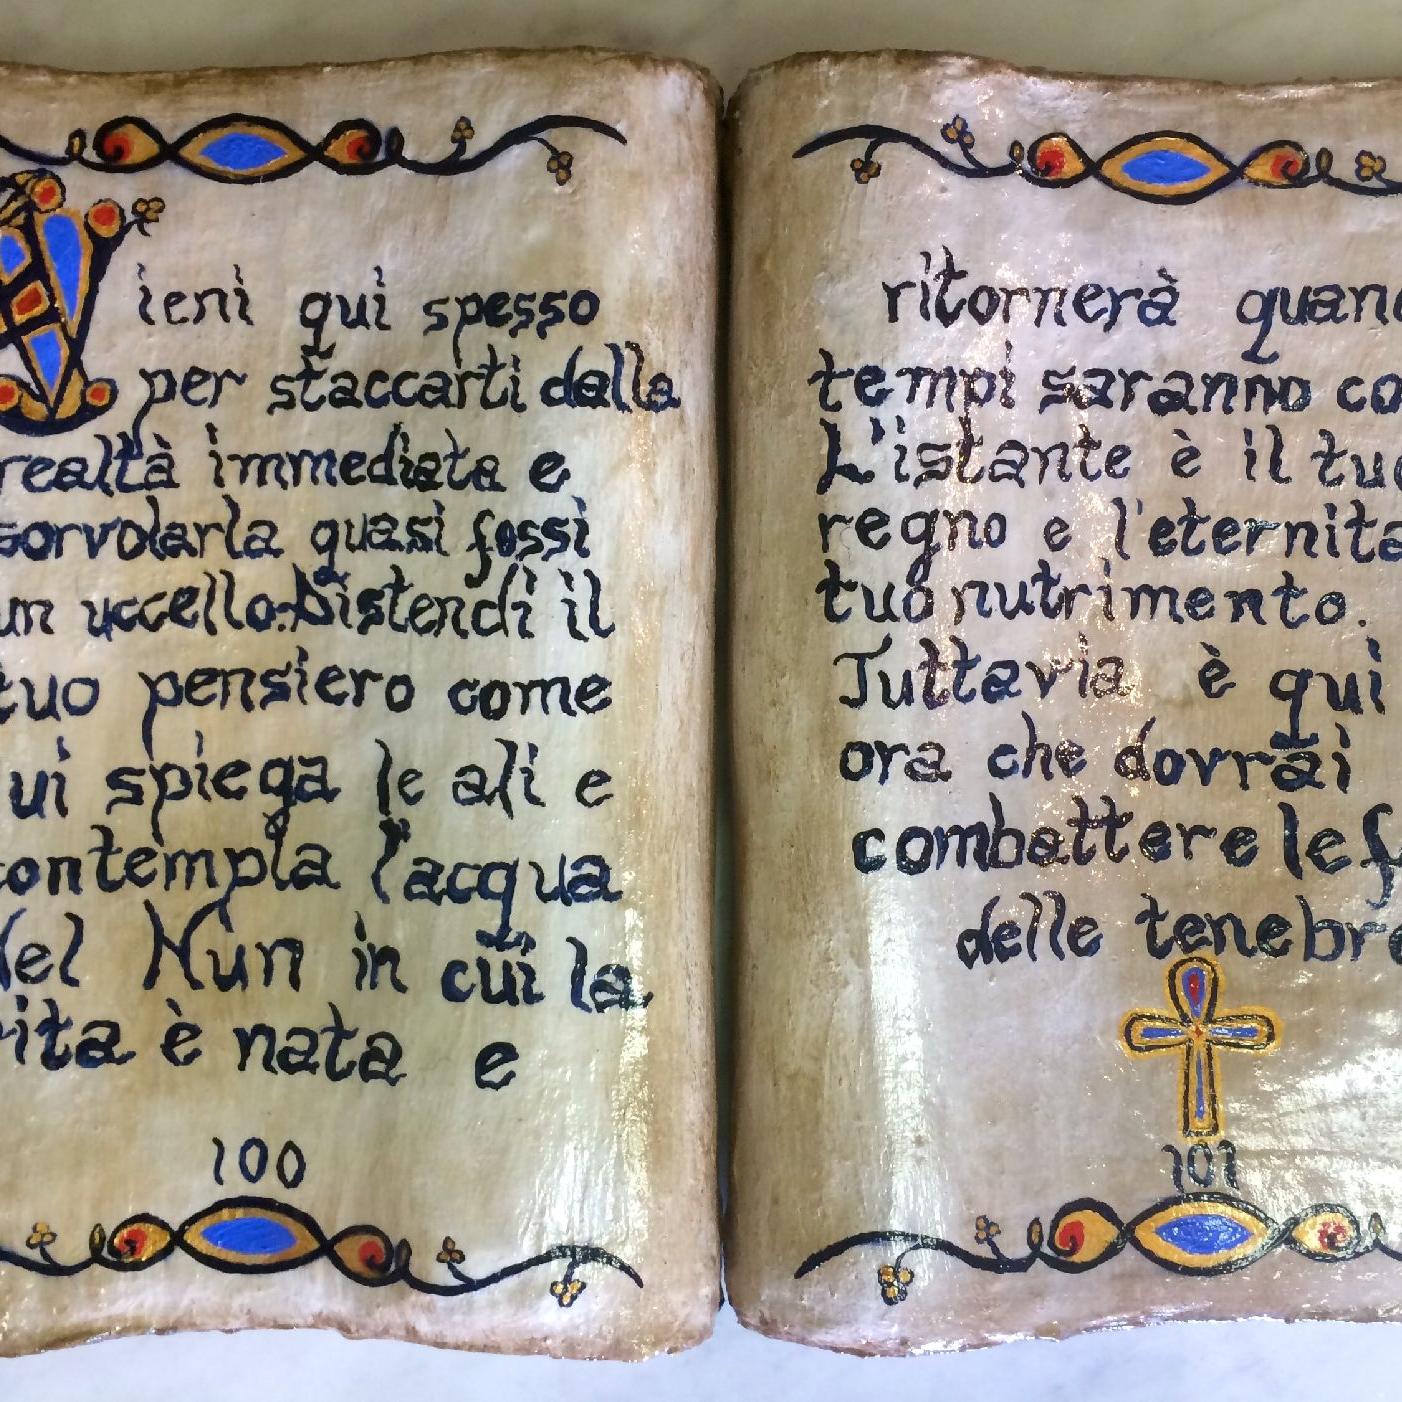 Vieni qui spesso
per staccarti dalla
realtà immediata e
sorvolarla quasi fossi
un uccello. Distendi il
tuo pensiero come
ui spiega le ali e
contempla l'acqua
del Nun in cui la
vita è nata e
100
ritornerà quand
tempi saranno co
L'istante è il tuo
regno e l'eternità
tuo nutrimento.
Tuttavia è qui
ora che dovrai
combattere le f
delle tenebre
101